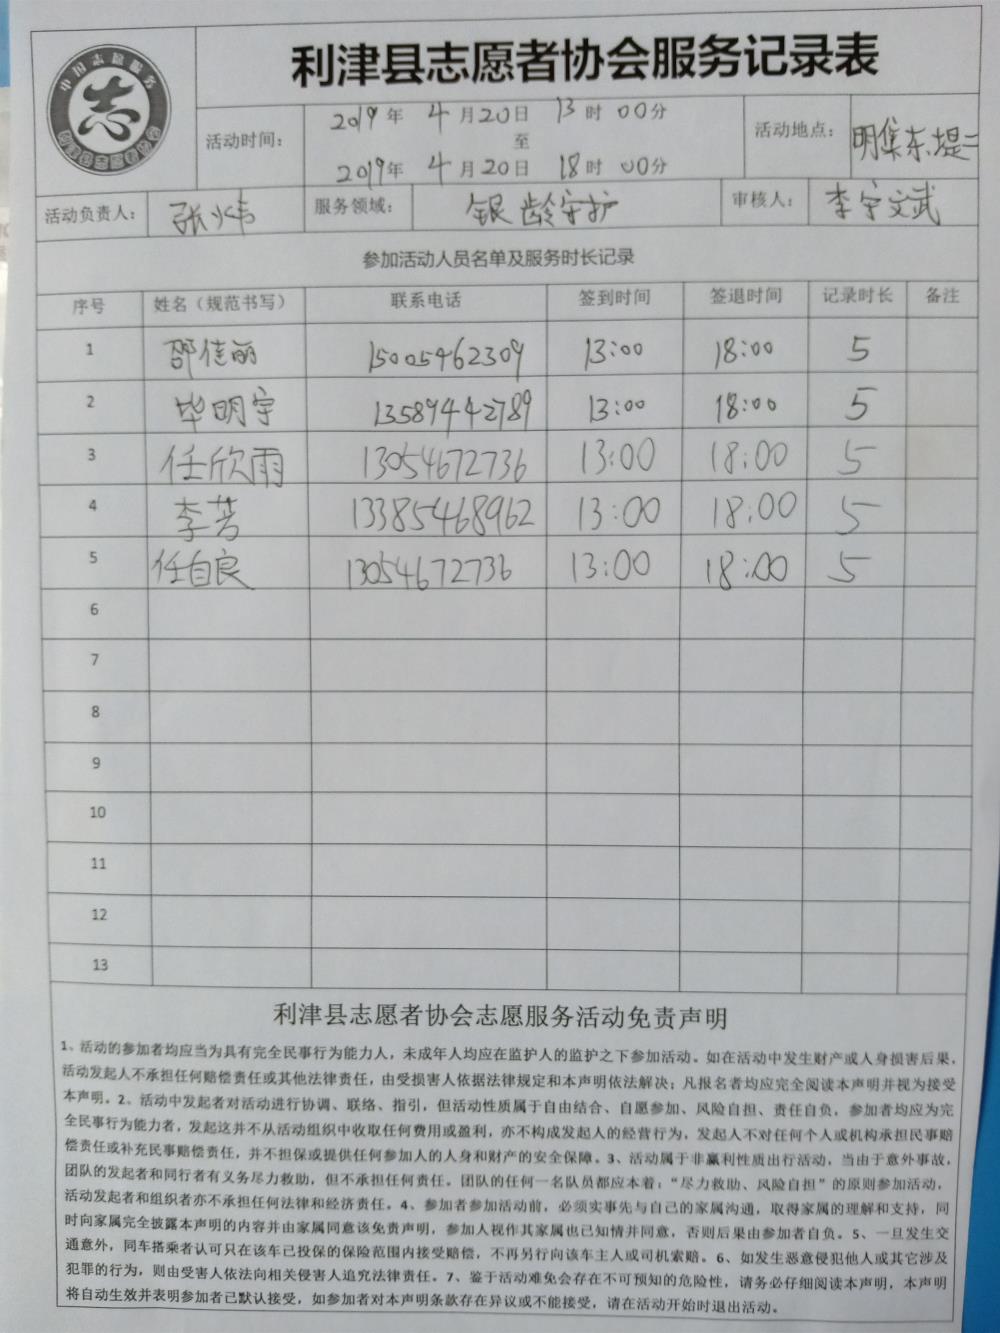 中国志愿服务
志
利津县志愿者协会服务记录表
活动时间： 2019年 4月20日 13时 00分
至
2019年 4月20日 18时 00分
活动地点： 明集东堤二
活动负责人： 张炜 服务领域： 银龄守护 审核人： 李宇文武
参加活动人员名单及服务时长记录
序号 姓名（规范书写） 联系电话 签到时间 签退时间 记录时长 备注
1 邵佳丽 15005462309 13:00 18:00 5
2 毕明宇 13589442789 13:00 18:00 5
3 任欣雨 13054672736 13:00 18:00 5
4 李芳 13385468962 13:00 18:00 5
5 任自良 13054672736 13:00 18:00 5
6
7
8
9
10
11
12
13
利津县志愿者协会志愿服务活动免责声明
1、活动的参加者均应当为具有完全民事行为能力人，未成年人均应在监护人的监护之下参加活动。如在活动中发生财产或人身损害后果，
活动发起人不承担任何赔偿责任或其他法律责任，由受损害人依据法律规定和本声明依法解决；凡报名者均应完全阅读本声明并视为接受
本声明。2、活动中发起者对活动进行协调、联络、指引，但活动性质属于自由结合、自愿参加、风险自担、责任自负，参加者均应为完
全民事行为能力者，发起这并不从活动组织中收取任何费用或盈利，亦不构成发起人的经营行为，发起人不对任何个人或机构承担民事赔
偿责任或补充民事赔偿责任，并不担保或提供任何参加人的人身和财产的安全保障。3、活动属于非赢利性质出行活动，当由于意外事故，
团队的发起者和同行者有义务尽力救助，但不承担任何责任。团队的任何一名队员都应本着：“尽力救助、风险自担”的原则参加活动，
活动发起者和组织者亦不承担任何法律和经济责任。4、参加者参加活动前，必须实事先与自己的家属沟通，取得家属的理解和支持，同
时向家属完全披露本声明的内容并由家属同意该免责声明，参加人视作其家属也已知情并同意，否则后果由参加者自负。5、一旦发生交
通意外，同车搭乘者认可只在该车已投保的保险范围内接受赔偿，不再另行向该车主人或司机索赔。6、如发生恶意侵犯他人或其它涉及
犯罪的行为，则由受害人依法向相关侵害人追究法律责任。7、鉴于活动难免会存在不可预知的危险性，请务必仔细阅读本声明，本声明
将自动生效并表明参加者已默认接受，如参加者对本声明条款存在异议或不能接受，请在活动开始时退出活动。